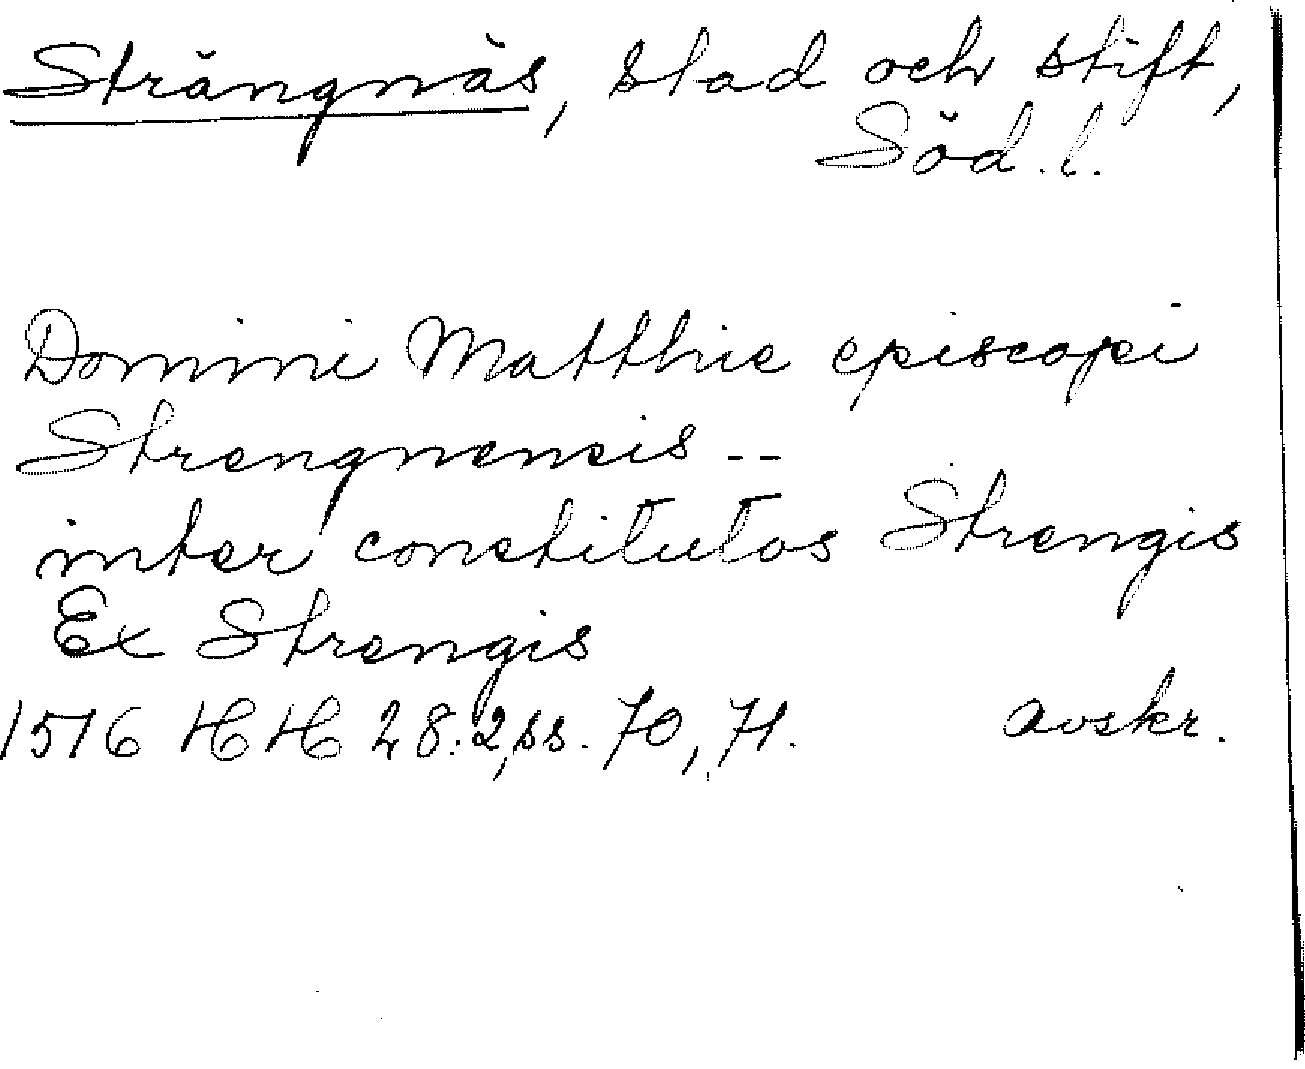 Strängnäs, stad och stift,
Söd. l.
Domini Matthie episcopi
Strengnensis --
inter constitutos Strengis
Ex Strengis
1516 HH 28:2, ss. 70, 71. avskr.